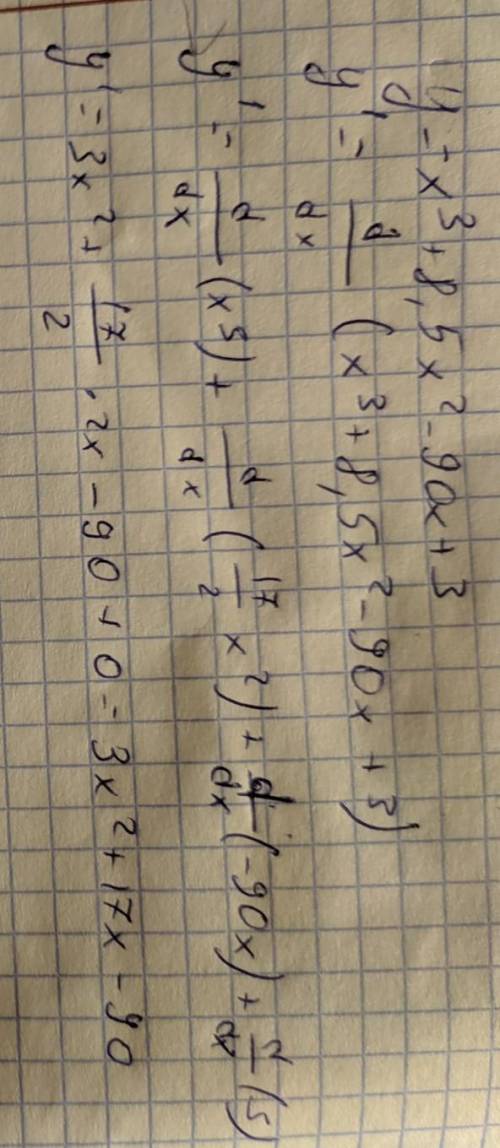 y = x³ + 8,5x² - 90x + 3
y' = d/dx (x³ + 8,5x² - 90x + 3)
y' = d/dx (x5) + d/dx (17/2 x²) + d/dx (-90x) + d/dx (5)
y' = 3x² + 17/2 · 2x - 90 + 0 = 3x² + 17x - 90